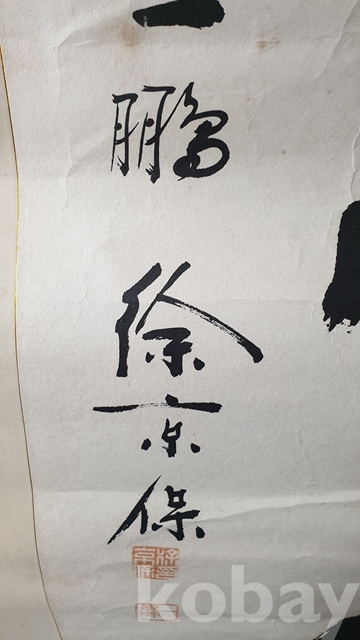 一鵬徐京保
kobay